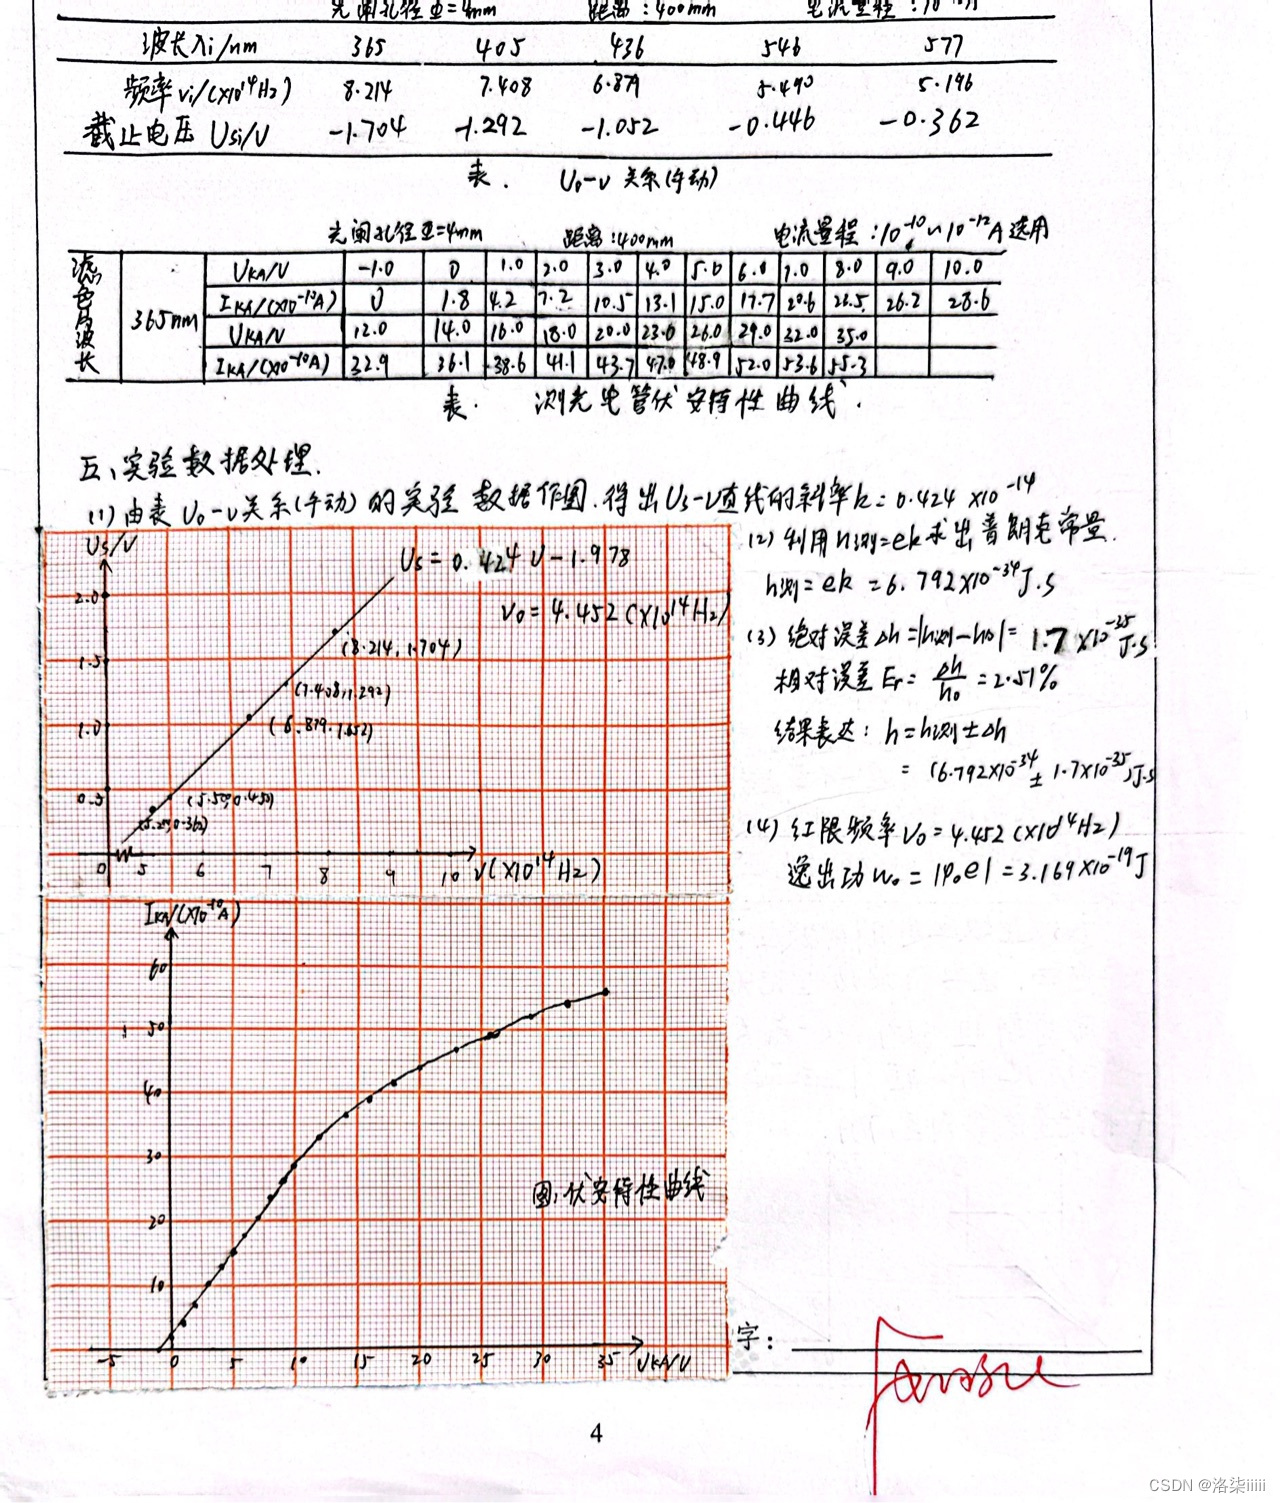 光阑孔径Φ=4mm 距离:400mm 电流量程:10
波长λi/nm 365 405 436 546 577
频率νi/(×10¹⁴Hz) 8.214 7.408 6.879 5.490 5.196
截止电压 Usi/V -1.704 -1.292 -1.052 -0.446 -0.362
表. U₀-ν 关系(手动)
光阑孔径Φ=4mm 距离:400mm 电流量程:10⁻¹⁰~10⁻¹²A 适用
滤色片波长 365nm
UKA/V -1.0 0 1.0 2.0 3.0 4.0 5.0 6.0 7.0 8.0 9.0 10.0
IKA/(×10⁻¹⁰A) 0 1.8 4.2 7.2 10.5 13.1 15.0 17.7 20.6 26.5 26.2 28.6
UKA/V 12.0 14.0 16.0 18.0 20.0 23.0 26.0 29.0 32.0 35.0
IKA/(×10⁻¹⁰A) 32.9 36.1 38.6 41.1 43.7 47.0 48.9 52.0 53.6 55.3
表. 测光电管伏安特性曲线.
五、实验数据处理.
(1)由表 U₀-ν关系(手动)的实验数据作图.得出Us-ν直线的斜率k=0.424×10⁻¹⁴
Us/V
Us=0.424ν-1.978
ν₀=4.452(×10¹⁴Hz)
2.0
1.5
1.0
0.5
(8.214,1.704)
(7.408,1.292)
(6.879,1.052)
(5.50,0.450)
(5.20,0.362)
0 5 6 7 8 9 10 ν(×10¹⁴Hz)
(2)利用h测=ek求出普朗克常量.
h测=ek=6.792×10⁻³⁴J.S
(3)绝对误差Δh=|h测-h0|=1.7×10⁻³⁵J.S
相对误差Er=Δh/h₀=2.51%
结果表达:h=h测±Δh
=(6.792×10⁻³⁴±1.7×10⁻³⁵)J.S
(4)红限频率ν₀=4.452(×10¹⁴Hz)
逸出功W₀=|φ₀e|=3.169×10⁻¹⁹J
IKA/(×10⁻¹⁰A)
60
50
40
30
20
10
图:伏安特性曲线
-5 0 5 10 15 20 25 30 35 UKA/V
字:
4
CSDN @洛柒iiiii